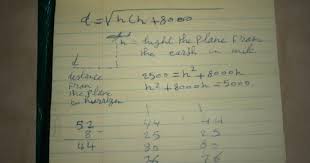 d = √h(h+8000
h = hight the plane from
the earth in mile
d
distance
from
the plane
to horrizon
2500 = h² + 8000h
h² + 8000h = 5000
52 44 44
8 25 25
44